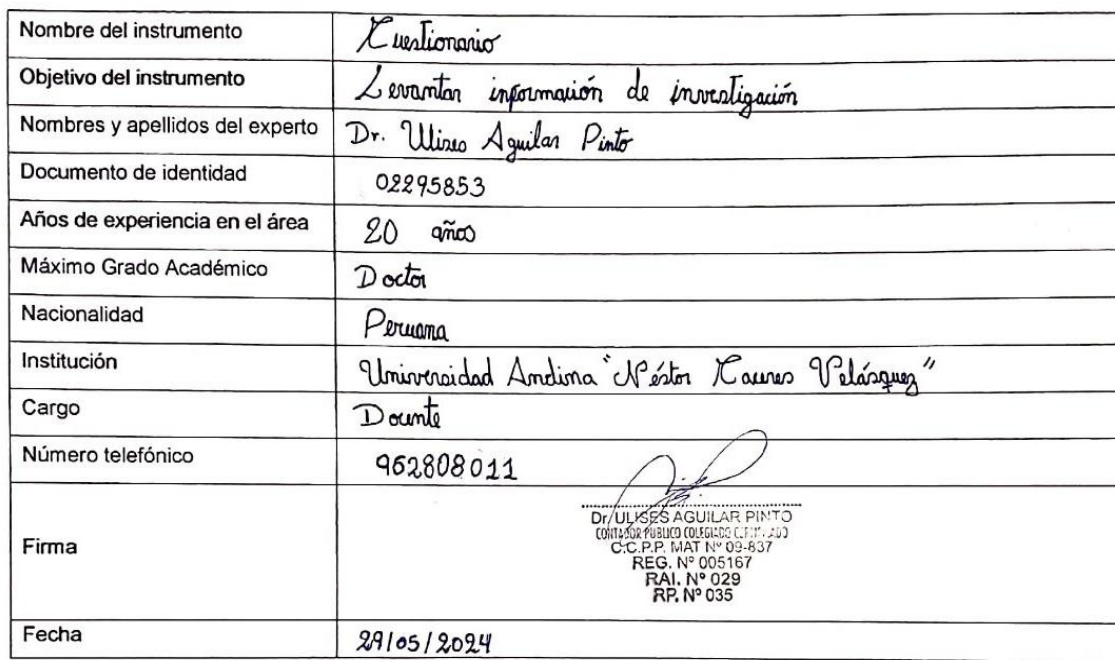 Nombre del instrumento Cuestionario
Objetivo del instrumento Levantar información de investigación
Nombres y apellidos del experto Dr. Ulises Aguilar Pinto
Documento de identidad 02295853
Años de experiencia en el área 20 años
Máximo Grado Académico Doctor
Nacionalidad Peruana
Institución Universidad Andina "Néstor Caceres Velásquez"
Cargo Docente
Número telefónico 962808011
Firma
Dr. ULISES AGUILAR PINTO
CONTADOR PUBLICO COLEGIADO CERTIFICADO
C.C.P.P. MAT Nº 09-837
REG. Nº 005167
RAI. Nº 029
RP. Nº 035
Fecha 29/05/2024